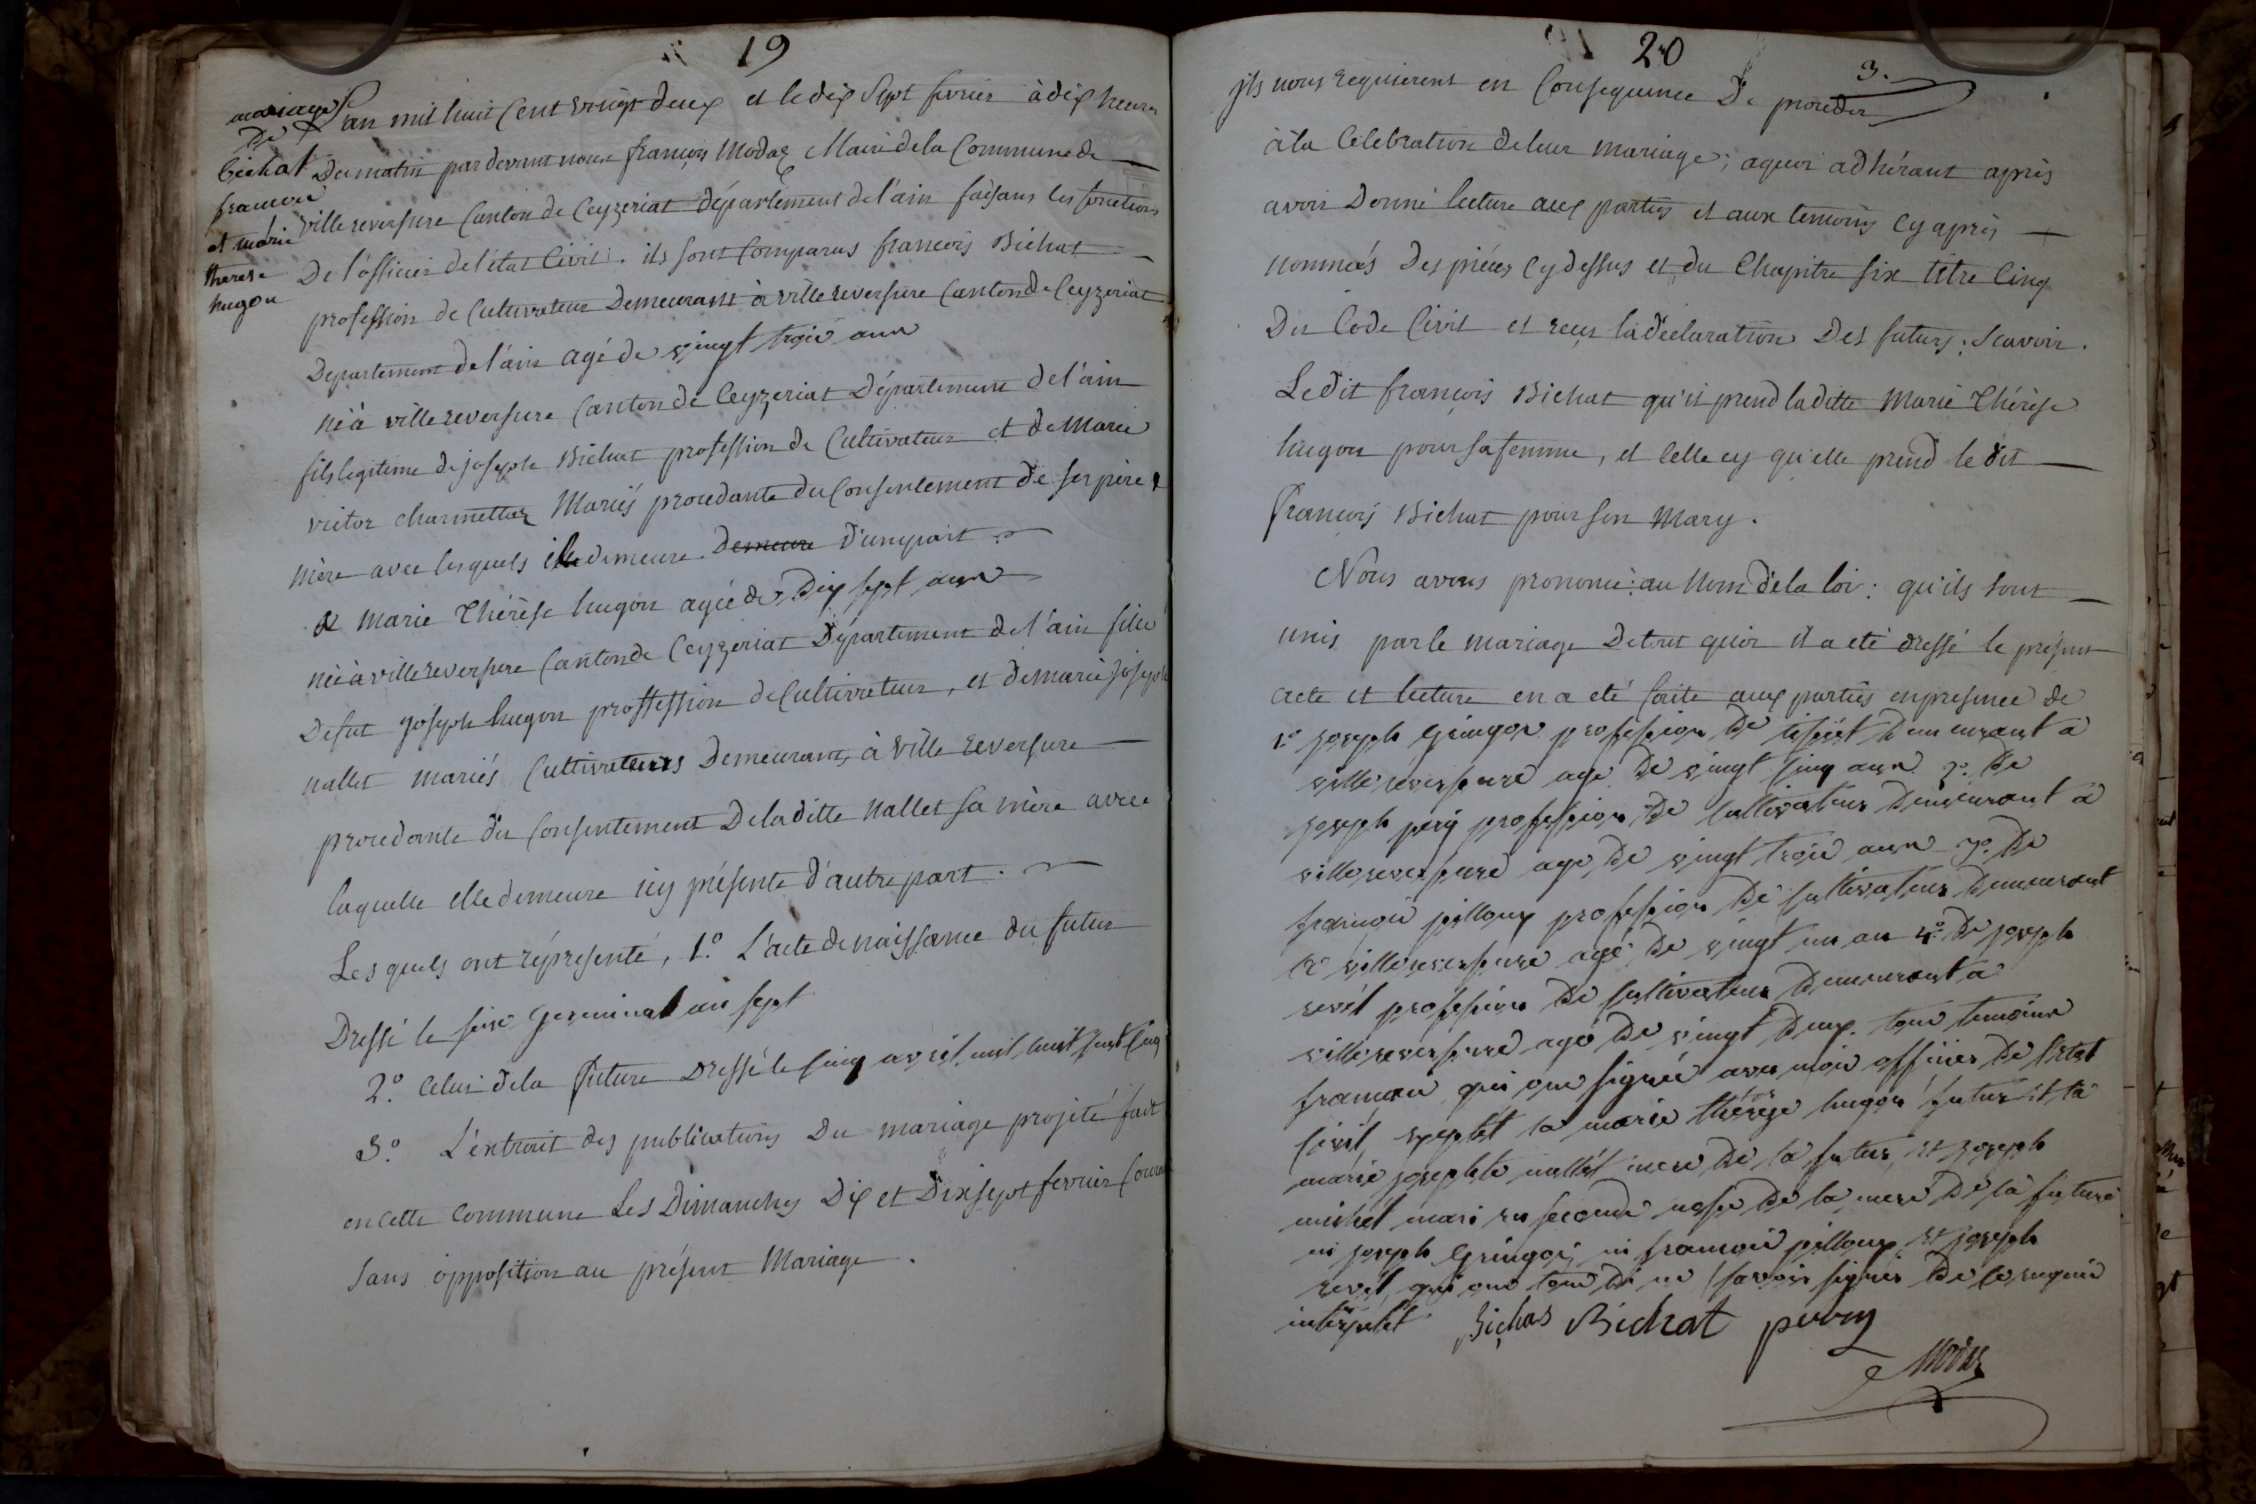 19
mariage
De
bichat
francois
et marie
therese
hugon
L'an mil huit Cent vingt deux et le dix Sept fevrier à dix heures
Du matin par devant nous françois Modas Maire de la Commune de
ville reversure Canton de Ceyzeriat département de l'ain faisans les fonctions
De l'officier de l'état Civil. ils sont Comparus francois Bichat
profession de Cultivateur Demeurant à ville reversure Canton de Ceyzeriat
Departement de l'ain agé de vingt trois ans
né à ville reversure Canton de Ceyzeriat Département de l'ain
fils legitime de joseph Bichat profession de Cultivateur et de Marie
victor charmettas Mariés procedante du Consentement de ses père &
mère avec lesquels il demeure demeure d'une part
& Marie Thérèse hugon agée de Dix sept ans
née à ville reversure Canton de Ceyzeriat Département de l'ain fille
Defut joseph hugon proffession de Cultivateur, et de marie joseph
nallet mariés Cultivateurs Demeurans à ville reversure
procedante du Consentement De la ditte nallet sa mère avec
laquelle elle demeure icy présente d'autre part.
Les quels ont répresenté, 1.° L'acte de naissance du futur
Dressé le seise germinal an sept
2.° Celui de la future Dressé le cinq avril mil huit cent cinq
3.° L'extrait des publications Du mariage projeté fait
en cette Commune Les Dimanches Dix et Dix sept fevrier Courant
sans opposition au présent Mariage.
20
3.
jls nous requierent en Consequence De proceder
à la Célébration de leur mariage; aquoi adhérant après
avoir Donné lecture aux parties et aux temoins cy après
nommés Des piéces cy dessus et du Chapitre six titre Cinq
Du Code Civil et reçu la déclaration Des futurs; Scavoir.
Le dit françois Bichat qu'il prend la ditte Marie Thérèse
hugon pour sa femme, et celle cy qu'elle prend le dit
françois Bichat pour son Mary.
Nous avons prononcé: au Nom de la loi: qu'ils sont
unis par le mariage De tout quoi il a eté dressé le présent
acte et lecture en a eté faite aux parties en presence de
1.° joseph gringoi profession De tissiet Demeurant a
ville reversure age De vingt cinq ans 2.° De
joseph pery profession De cultivateur Demeurant a
ville reversure age De vingt trois ans 3.° De
francois pilloux profession De cultivateur Demeurant
a ville reversure agé De vingt un an 4.° De joseph
revel profession De cultivateur Demeurant a
ville reversure agé De vingt Deux tous temoins
francais qui ont signée avec moi officier De l'etat
civil, exeptét la marie théreze hugon future et la
marie josephte nallét mere De la future et joseph
michél mari en seconde nose De la mere De la future
ni joseph Gringoi ni francois pilloux et joseph
revél qui ont tous Di ne savoir signer De ce enquis
interpelét Bichas Bichat perry
Modas